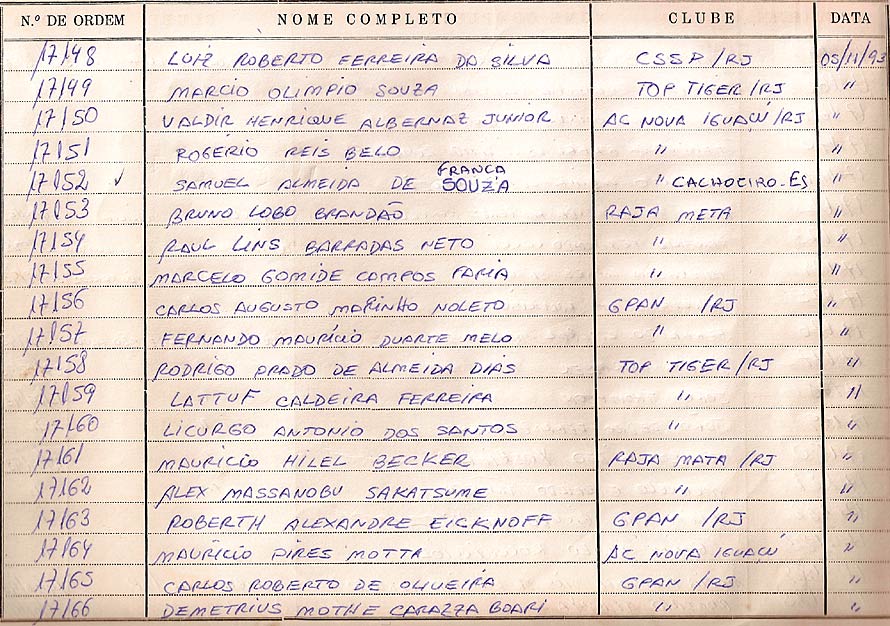 N.º DE ORDEM NOME COMPLETO CLUBE DATA
17148 LUIZ ROBERTO FERREIRA DA SILVA CSSP/RJ 05/11/93
17149 MARCIO OLIMPIO SOUZA TOP TIGER/RJ "
17150 VALDIR HENRIQUE ALBERNAZ JUNIOR AC NOVA IGUAÇÚ/RJ "
17151 ROGÉRIO REIS BELO " "
17152 ✓ SAMUEL ALMEIDA DE FRANCA SOUZA " CACHOEIRO-ES "
17153 BRUNO LOBO BRANDÃO RAJA META "
17154 RAUL LINS BARRADAS NETO " "
17155 MARCELO GOMIDE CAMPOS FARIA " "
17156 CARLOS AUGUSTO MARINHO NOLETO GPAN /RJ "
17157 FERNANDO MAURÍCIO DUARTE MELO " "
17158 RODRIGO PRADO DE ALMEIDA DIAS TOP TIGER/RJ "
17159 LATTUF CALDEIRA FERREIRA " "
17160 LICURGO ANTONIO DOS SANTOS " "
17161 MAURICIO HILEL BECKER RAJA MATA /RJ "
17162 ALEX MASSANOBU SAKATSUME " "
17163 ROBERTH ALEXANDRE EICKNOFF GPAN /RJ "
17164 MAURÍCIO PIRES MOTTA AC NOVA IGUAÇÚ "
17165 CARLOS ROBERTO DE OLIVEIRA GPAN /RJ "
17166 DEMETRIUS MOTHE CARAZZA BOARI " "